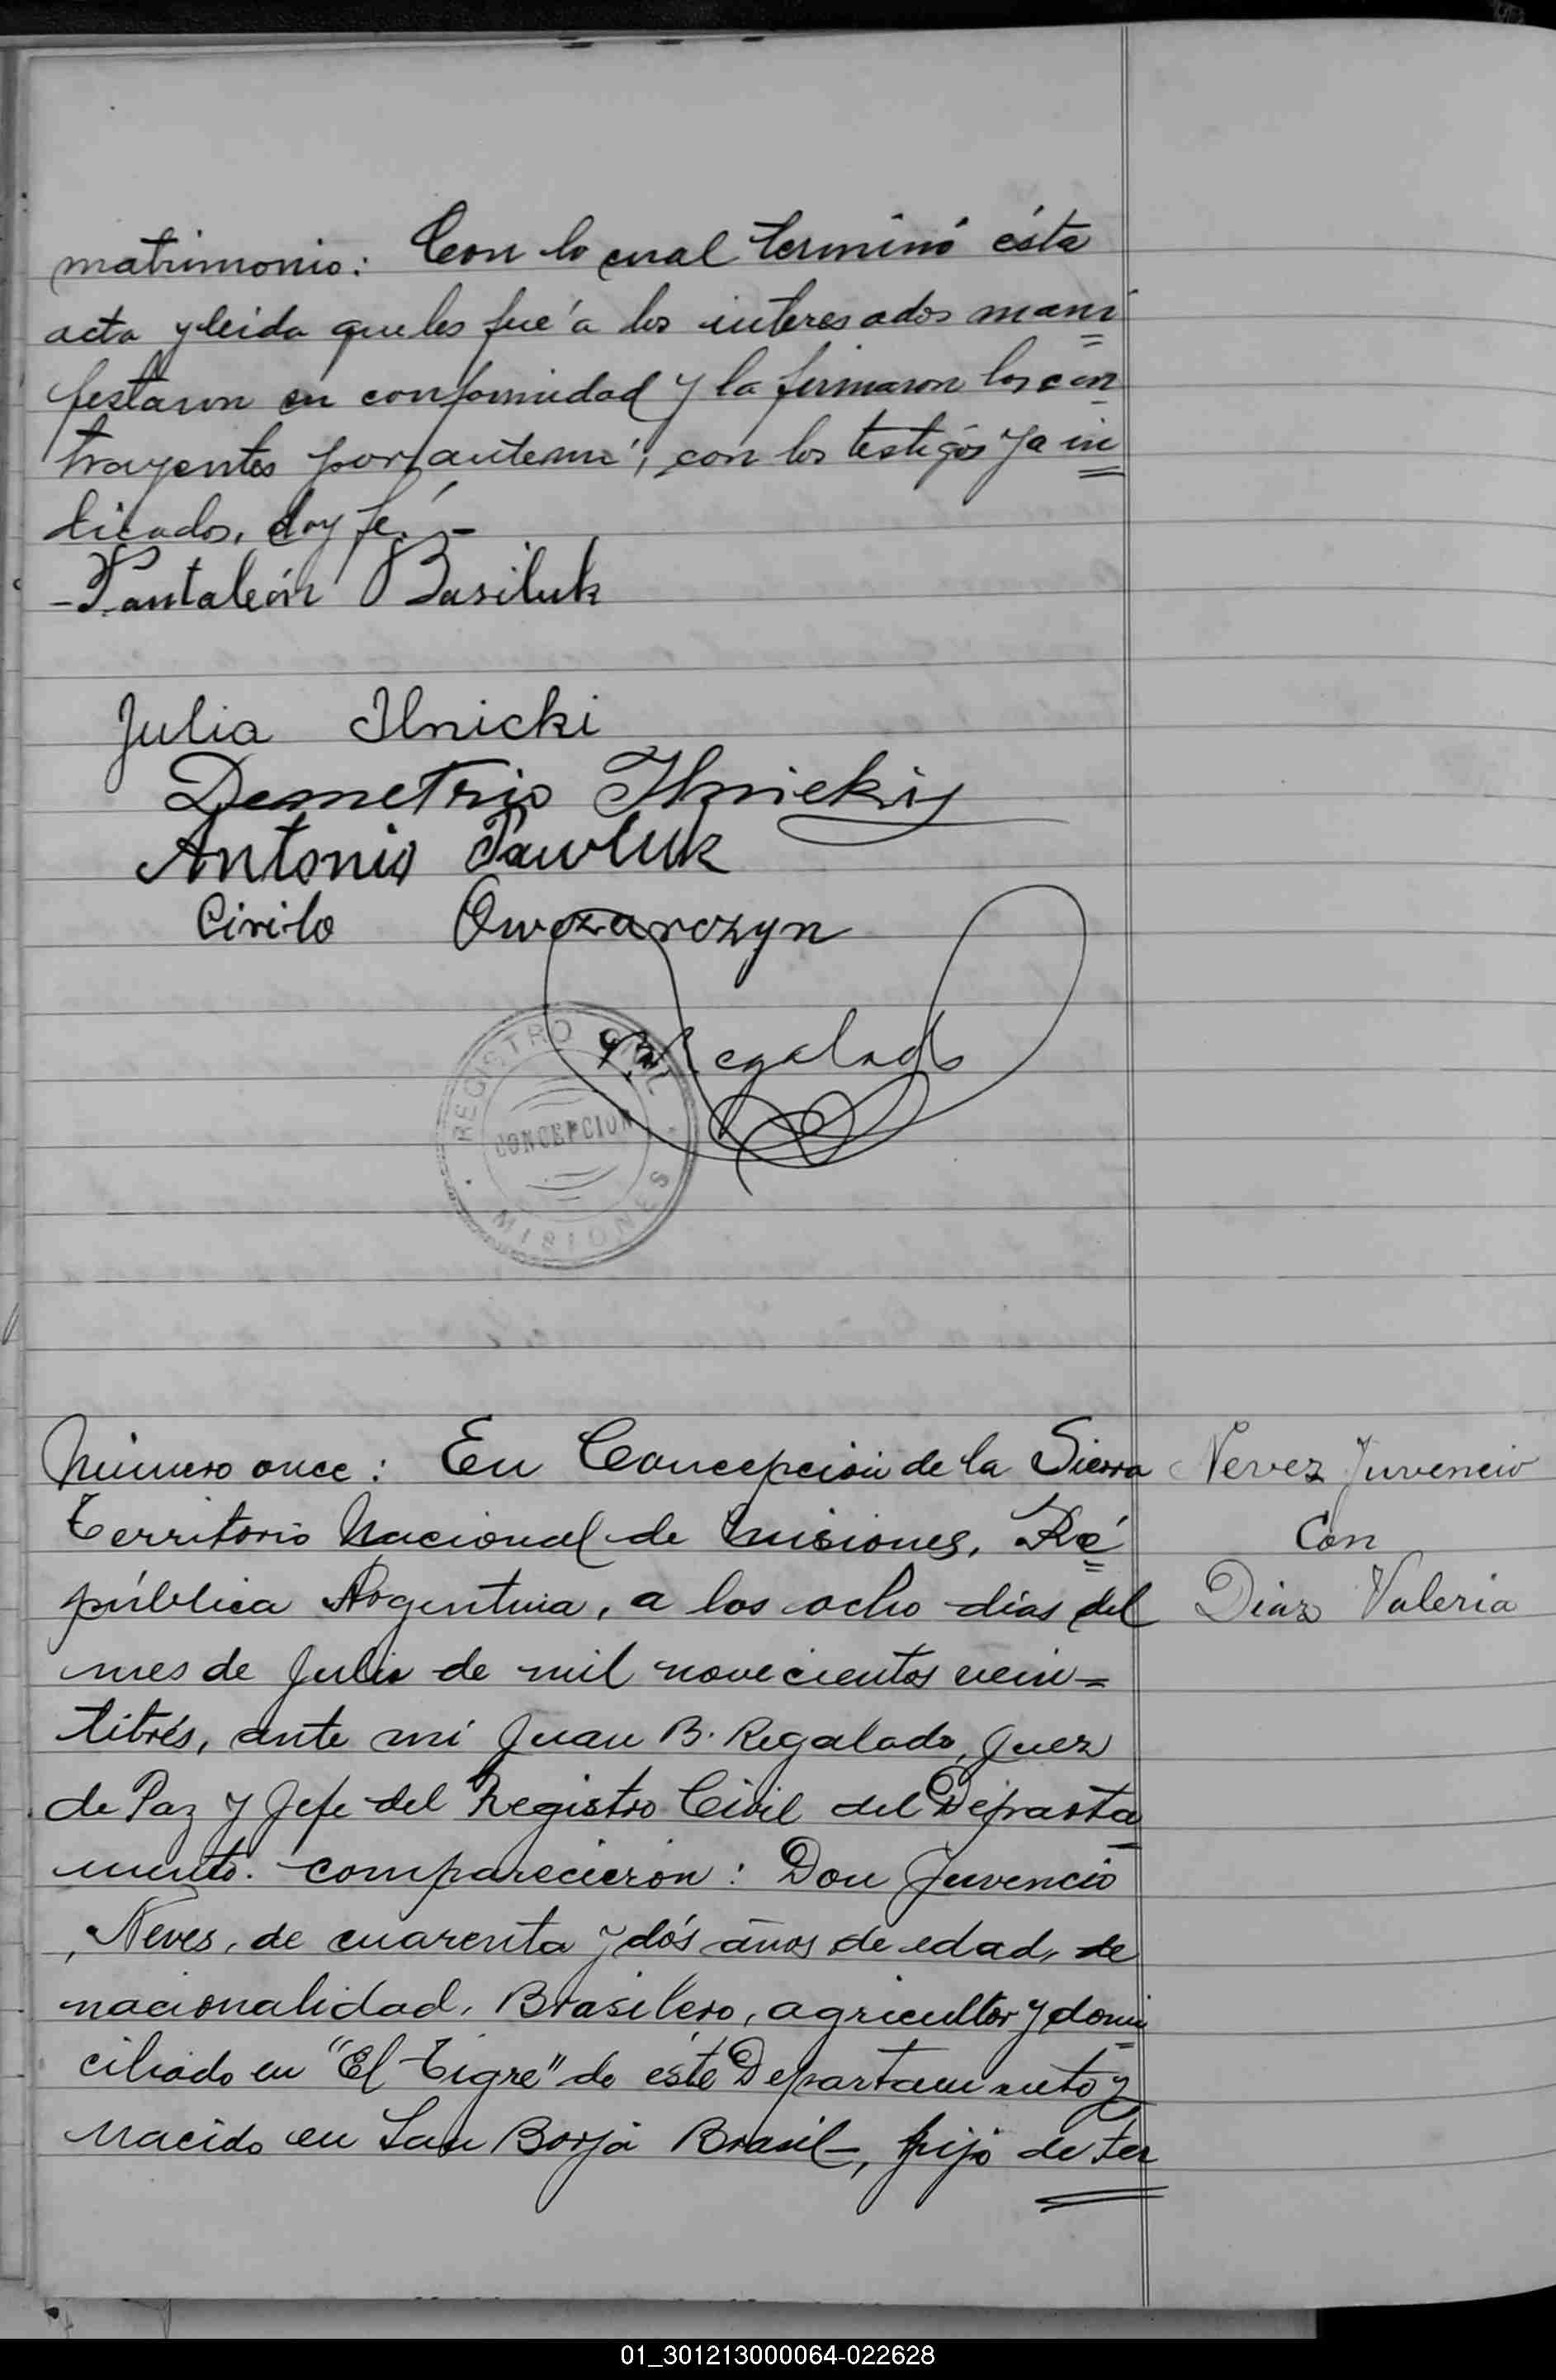 matrimonio: Con lo cual terminó ésta
acta y leida que les fué a los interesados mani
festaron su conformidad y la firmaron los con
trayentes por ante mi, con los testigos ya in
dicados, doy fé. -
- Pantaleón Basiluk
Julia Ilnicki
Demetrio Ilnickiy
Antonio Pawluk
Cirilo Owozarozyn
Regalado
REGISTRO CIVIL
CONCEPCION
MISIONES
Número once: En Concepción de la Sierra
Nevez Juvencio
Territorio Nacional de Misiones, Ré
Con
pública Argentina, a los ocho días del
Diaz Valeria
mes de Julio de mil novecientos vein=
titrés, ante mi Juan B. Regalado, Juez
de Paz y Jefe del Registro Civil del Departa
mento. comparecieron: Don Juvencio
Neves, de cuarenta y dós años de edad, de
nacionalidad, Brasilero, agricultor y domi
ciliado en "El Tigre" de éste Departamento y
nacido en San Borja Brasil-, hijo de Fer
01_301213000064-022628